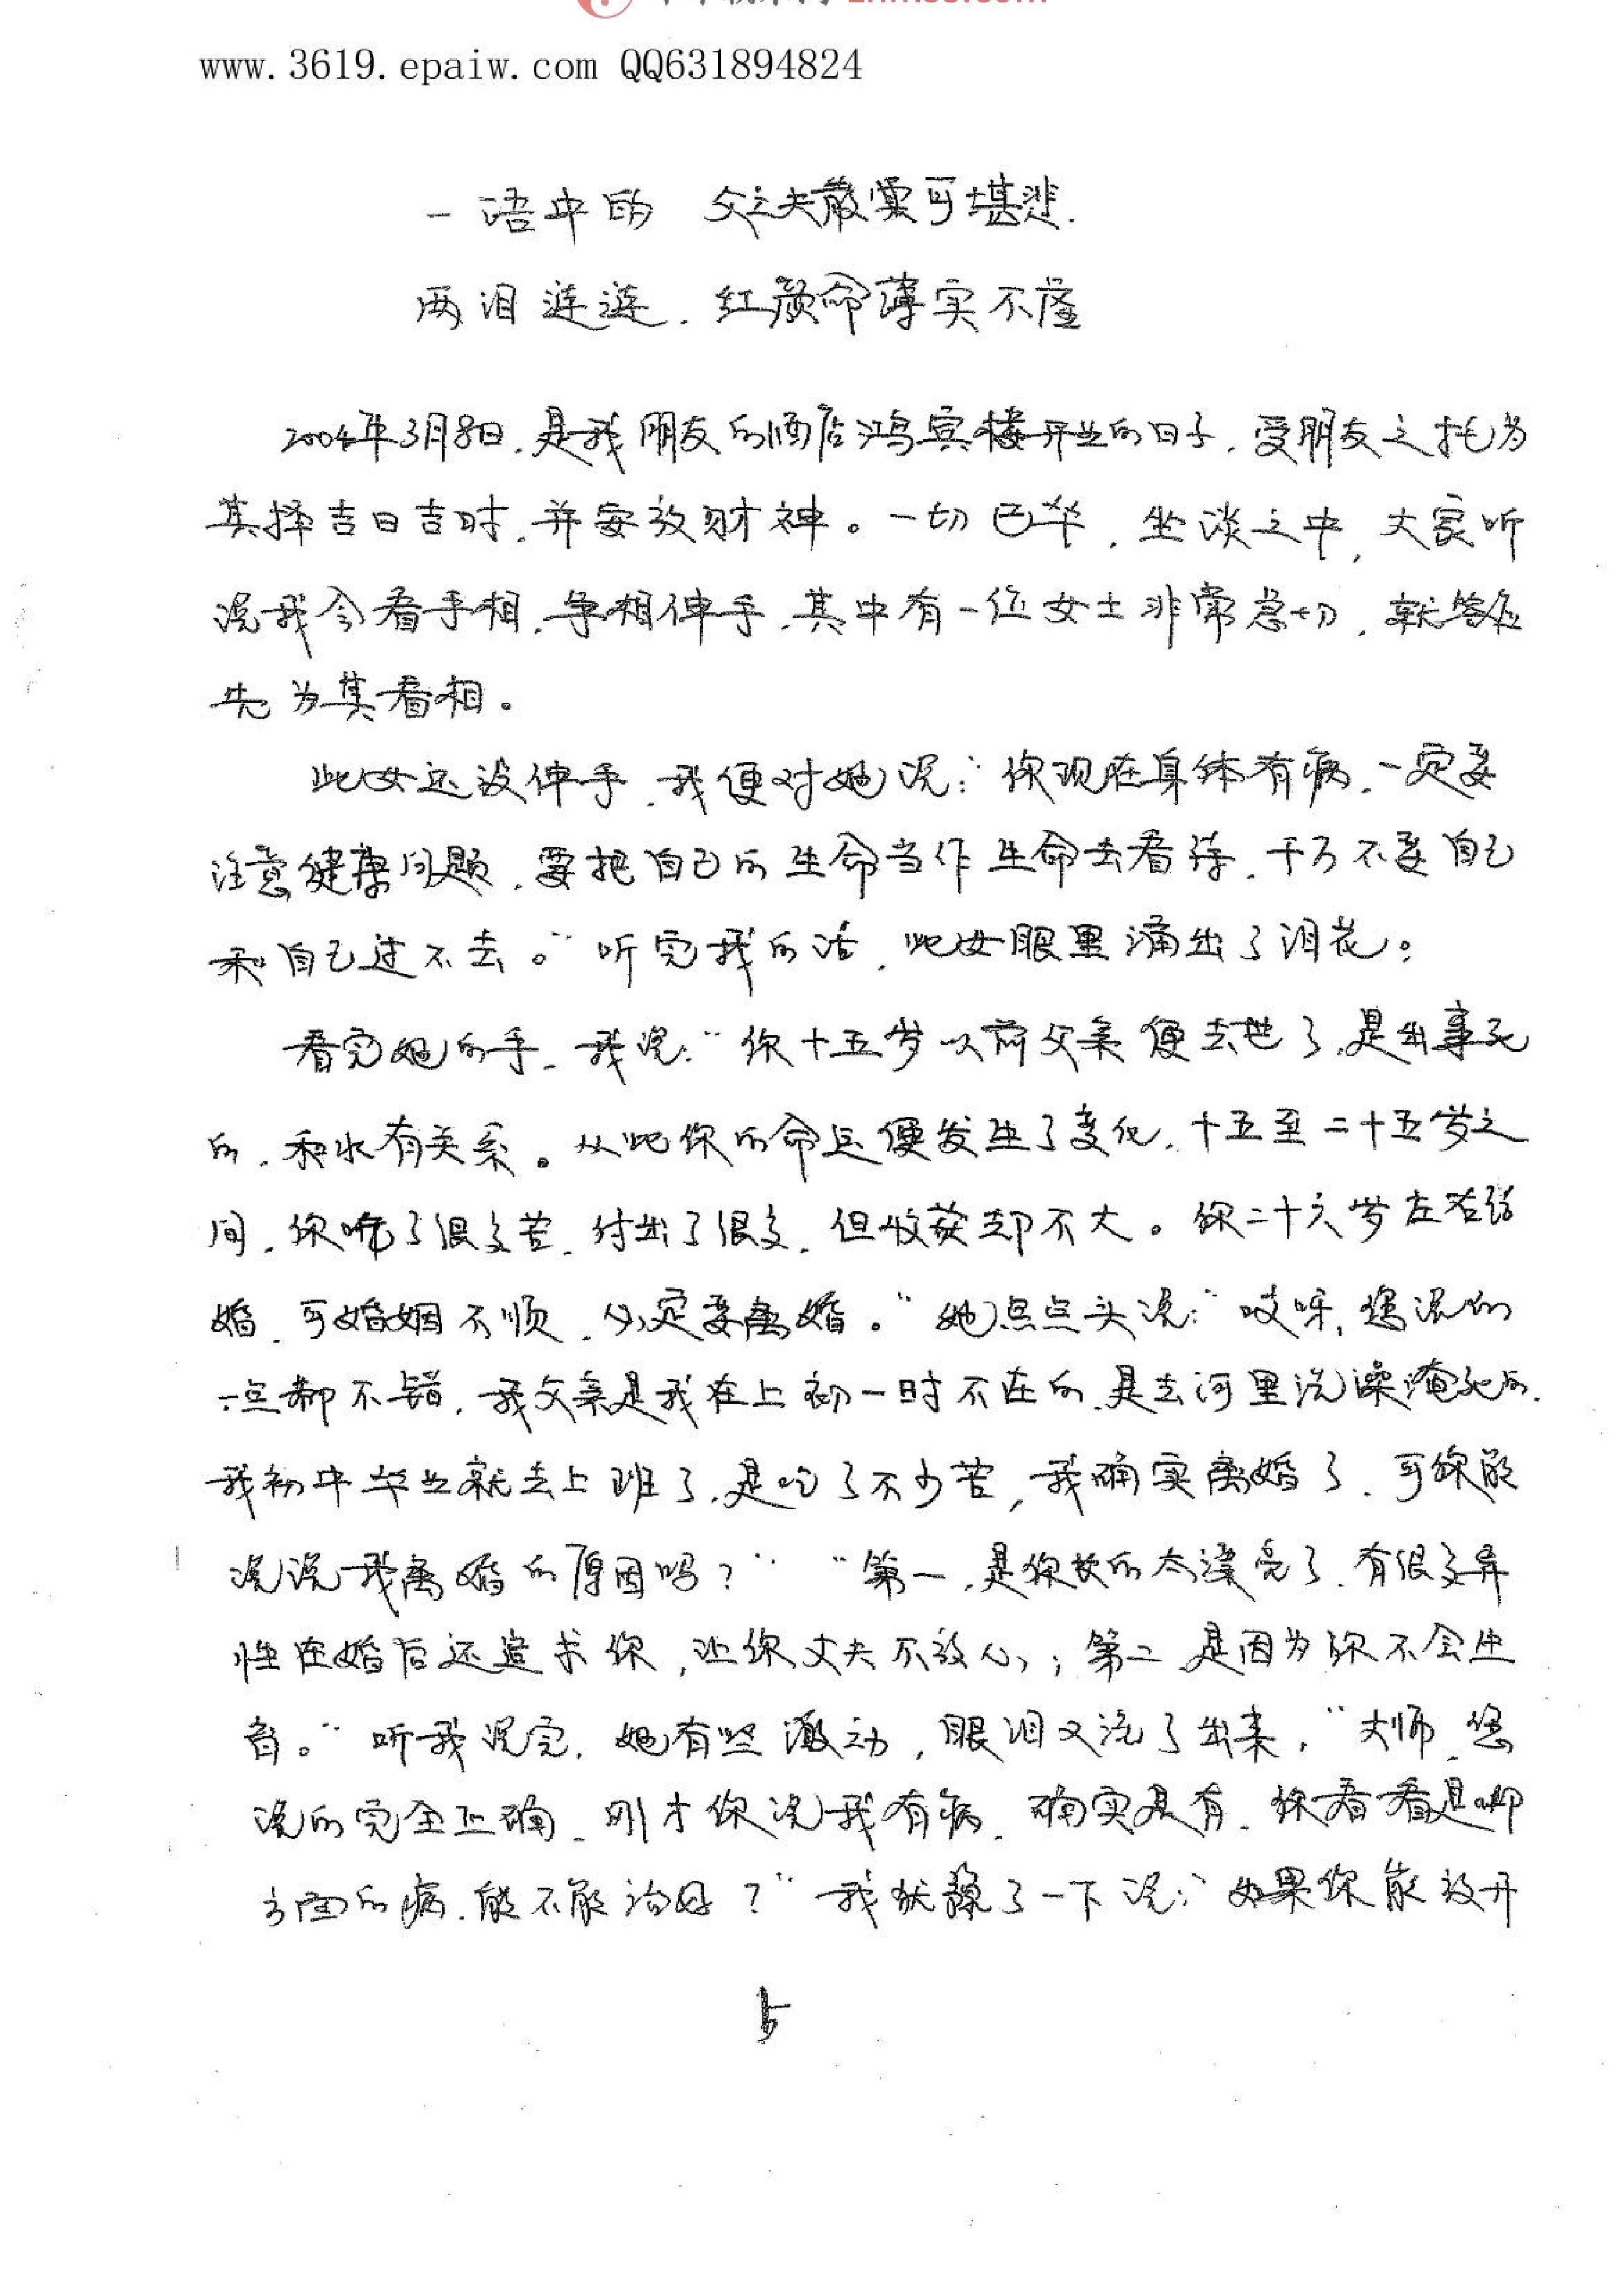 www.3619.epaiw.com QQ631894824
一语中的 父亡夫散实可堪悲.
两泪涟涟.红颜命薄实不虚
2004年3月8日.是我朋友的酒店鸿宾楼开业的日子.受朋友之托为
其择吉日吉时.并安放财神。一切已毕.坐谈之中,大家听
说我会看手相.争相伸手.其中有一位女士非常急切.就答应
先为其看相。
此女还没伸手.我便对她说:“你现在身体有病.一定要
注意健康问题.要把自己的生命当作生命去看待.千万不要自己
和自己过不去。”听完我的话.此女眼里涌出了泪花。
看完她的手.我说:“你十五岁以前父亲便去世了.是出事死
的.和水有关系。从此你的命运便发生了变化.十五至二十五岁之
间.你吃了很多苦.付出了很多.但收获却不大。你二十六岁左右结
婚.可婚姻不顺.必定要离婚。”她点点头说:“哎呀,您说的
一点都不错.我父亲是我在上初一时不在的.是去河里洗澡淹死的.
我初中毕业就去上班了.是吃了不少苦,我确实离婚了.可你能
说说我离婚的原因吗?”“第一.是你长的太漂亮了.有很多异
性在婚后还追求你,让你丈夫不放心;第二.是因为你不会生
育。”听我说完.她有些激动,眼泪又流了出来,“大师.您
说的完全正确.刚才你说我有病.确实是有.你看看是哪
方面的病.能不能治好?”我犹豫了一下说:“如果你能放开
5